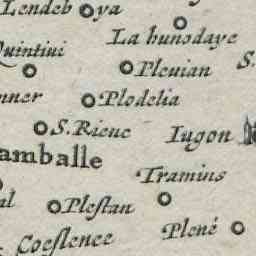 Lendeb ya
La hunodaye
Quintiui
Pleuian
S.
nner
Plodelia
S. Rieuc
Iugon
amballe
Tramins
al
Pleſtan
Plené
Coeſlence